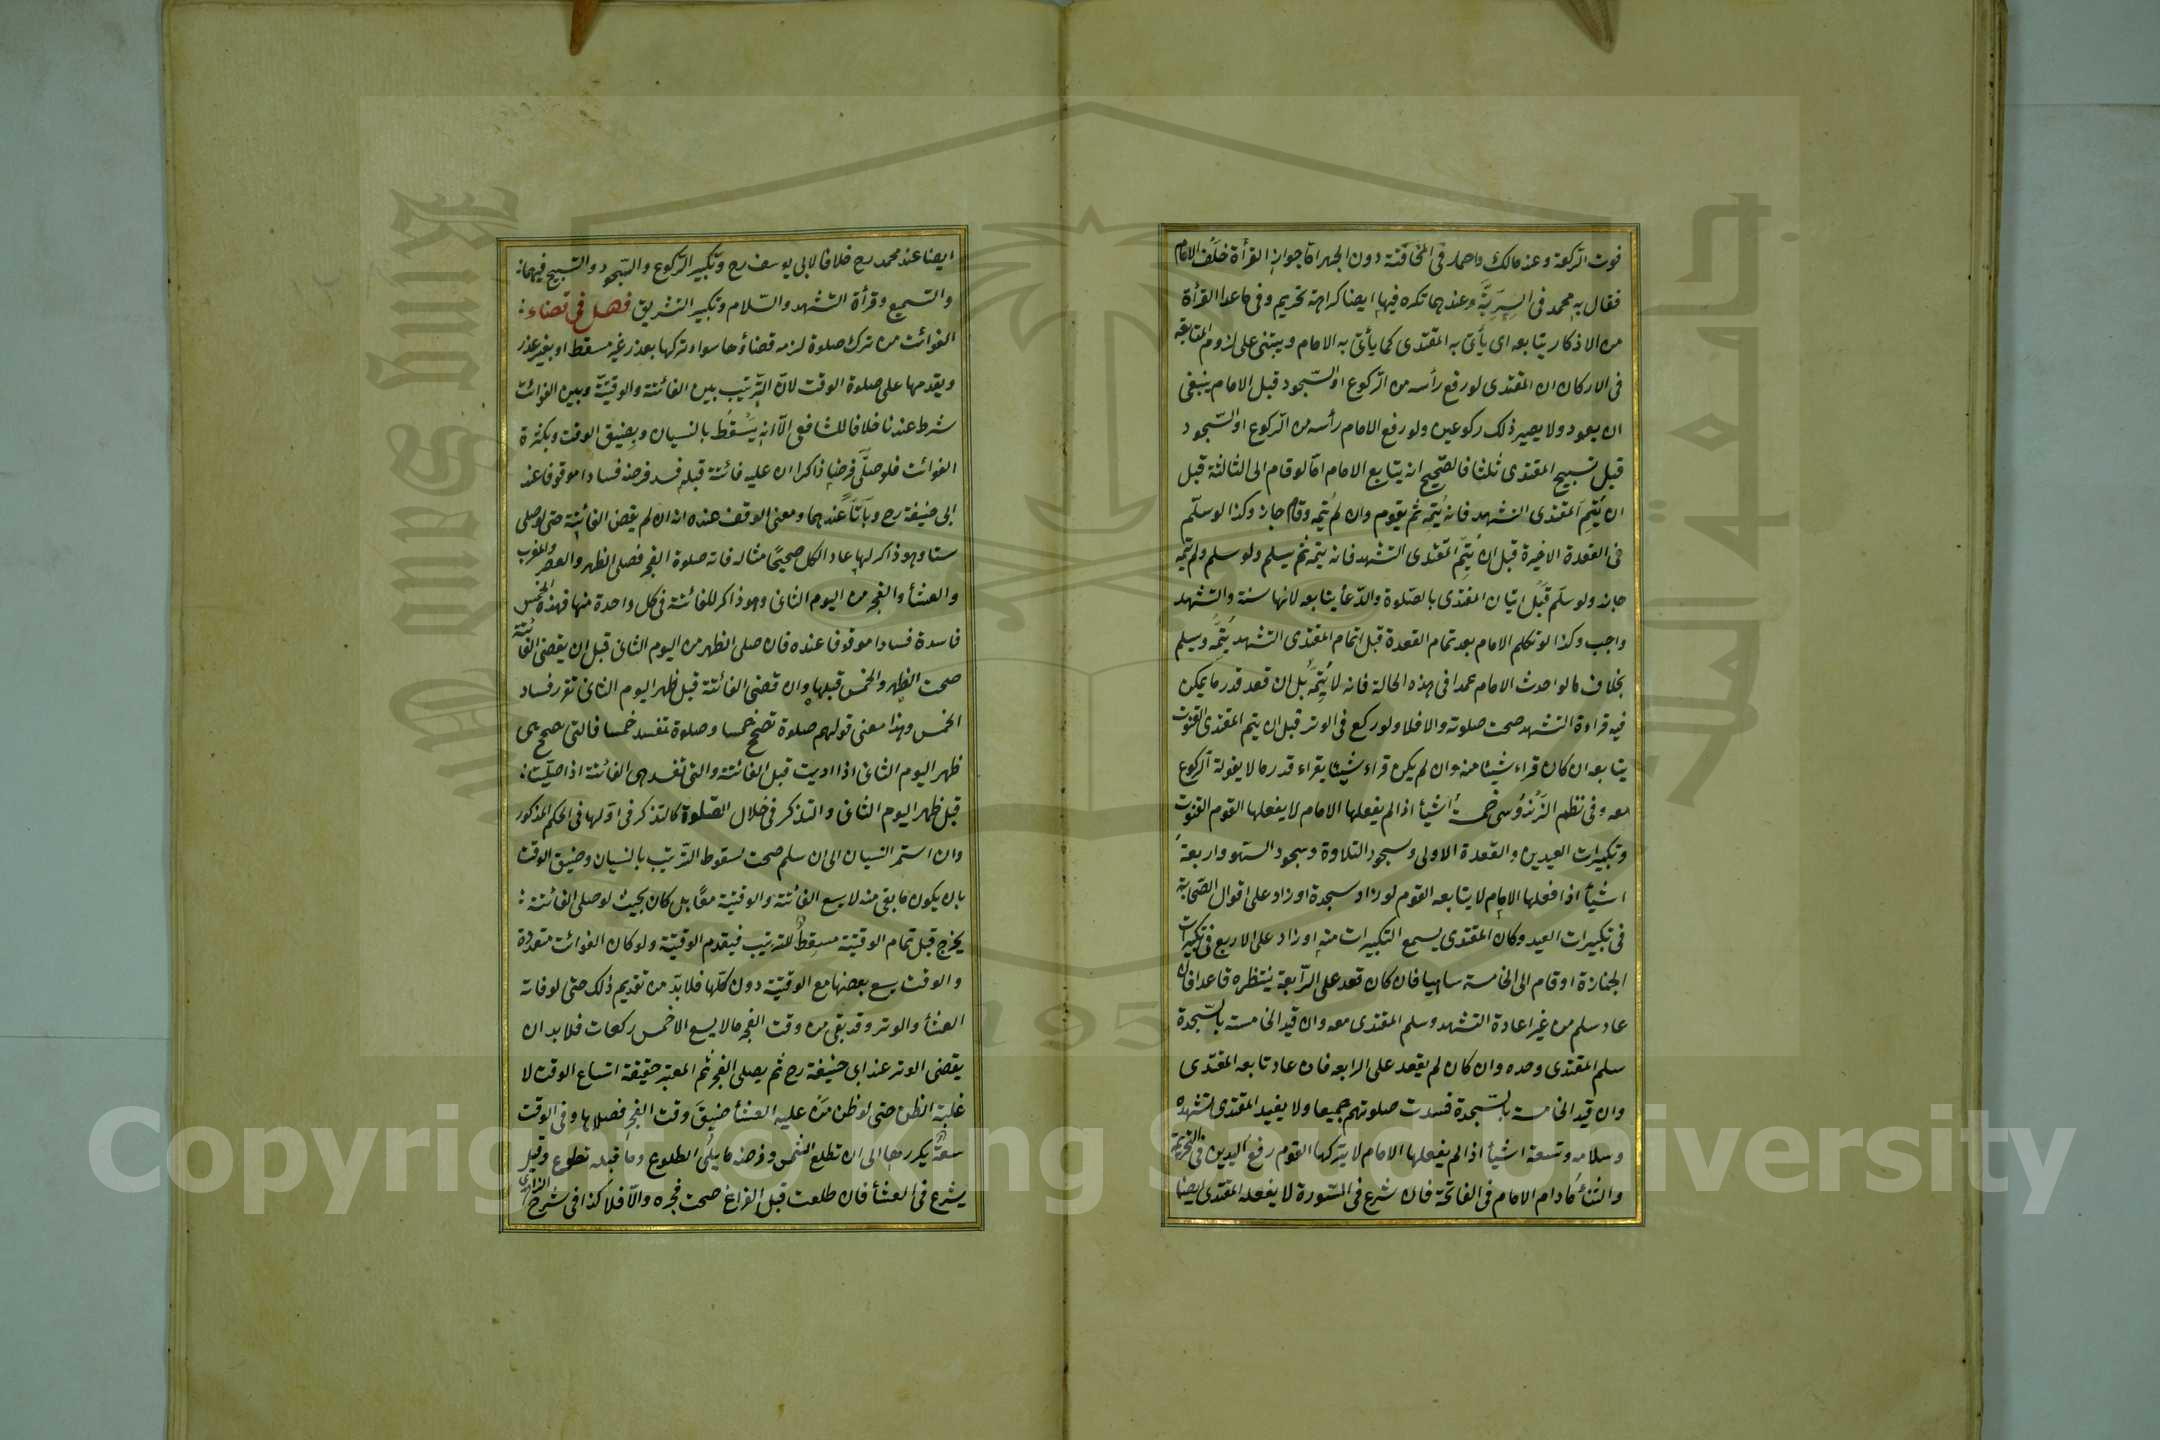 فوت الركعة وعند مالك واحمد في المخافتة دون الجهر اما جواز القرأة خلف الامام
فقال به محمد في السرية وعندهما تكره فيها ايضا كراهة تحريم وفي ما عدا القرأة
من الاذكار يتابعه اى يأتى به المقتدى كما يأتى به الامام ويبتنى على لزوم المتابعة
فى الاركان ان المقتدى لو رفع رأسه من الركوع او السجود قبل الامام ينبغى
ان يعود ولا يصير ذلك ركوعين ولو رفع الامام رأسه من الركوع او السجود
قبل تسبيح المقتدى ثلثا فالصحيح انه يتابع الامام اما لو قام الى الثالثة قبل
ان يُتِمَ المقتدى التشهد فانه يُتمه ثم يقوم وان لم يُتمه وقام جاز وكذا لو سلّم
فى القعدة الاخيرة قبل ان يُتِمّ المقتدى التشهد فانه يتمه ثم يسلم ولو سلم ولم يتمه
جاز ولو سلّم قبل اتيان المقتدى بالصلوة والدعأ يتابعه لانها سنة والتشهد
واجب وكذا لو تكلم الامام بعد تمام القعدة قبل اتمام المقتدى التشهد يُتمّه ويسلم
بخلاف ما لو احدث الامام عمدا فى هذه الحالة فانه لا يُتِمّه بل ان قعد قدر ما يمكن
فيه قراءة التشهد صحت صلوته والا فلا ولو ركع فى الوتر قبل ان يتم المقتدى القنوت
يتابعه ان كان قراء شيئا منه وان لم يكن قراء شيئا يقراء قدر ما لا يفوته الركوع
معه وفى نظم الزندوسى خمسة اشيأ اذا لم يفعلها الامام لا يفعلها القوم القنوت
وتكبيرات العيدين والقعدة الاولى وسجود التلاوة وسجود السهو واربعة
اشيأ اذا فعلها الامام لا يتابعه القوم لو زاد سجدة او زاد على اقوال الصحابة
فى تكبيرات العيد وكان المقتدى يسمع التكبيرات منه او زاد على الاربع فى تكبيرات
الجنازة او قام الى الخامسة ساهيا فان كان قعد على الرابعة ينتظره قاعدا فان
عاد سلم من غير اعادة التشهد وسلم المقتدى معه وان قيد الخامسة بالسجدة
سلم المقتدى وحده وان كان لم يقعد على الرابعة فان عاد تابعه المقتدى
وان قيد الخامسة بالسجدة فسدت صلوتهم جميعا ولا يفيد المقتدى تشهده
وسلامه وتسعة اشيأ اذا لم يفعلها الامام لا يتركها القوم رفع اليدين فى التحريمة
والثنأ مادام الامام فى الفاتحة فان شرع فى السورة لا يفعله المقتدى ايضا
ايضا عند محمد رح خلافا لابى يوسف رح وتكبير الركوع والسجود والتسبيح فيهما
والتسميع وقرأة التشهد والسلام وتكبير التشريق فصل فى قضاء
الفوائت من ترك صلوة لزمه قضاؤها سواء تركها بعذر غير مسقط او بغير عذر
ويقدمها على صلوة الوقت لان الترتيب بين الفائتة والوقتية وبين الفوائت
شرط عندنا خلافا للشافعى الا انه يسقط بالنسيان وبضيق الوقت وبكثرة
الفوائت فلو صلّى فرضا ذاكرا ان عليه فائتة قبله فسد فرضه فسادا موقوفا عند
ابى حنيفة رح وباتّاً عندهما ومعنى الوقف عنده انه ان لم يقض الفائتة حتى لو صلى
ستا وهو ذاكر لها عاد الكل صحيحا مثاله فاته صلوة الفجر فصلى الظهر والعصر والمغرب
والعشأ والفجر من اليوم الثانى وهو ذاكر للفائتة فى كل واحدة منها فهذه الخمس
فاسدة فسادا موقوفا عنده فان صلى الظهر من اليوم الثانى قبل ان يقضى الفائتة
صحت الظهر والخمس قبلها وان قضى الفائتة قبل ظهر اليوم الثانى تقرر فساد
الخمس وهذا معنى قولهم صلوة تصحح خمسا وصلوة تفسد خمسا فالتى تصحح هى
ظهر اليوم الثانى اذا اديت قبل الفائتة والتى تفسد هى الفائتة اذا صليت
قبل ظهر اليوم الثانى والتذكر فى خلال الصلوة كالتذكر فى اولها فى الحكم المذكور
وان استمر النسيان الى ان سلم صحت لسقوط الترتيب بالنسيان وضيق الوقت
بان يكون ما بقى منه لا يسع الفائتة والوقتية معًا بل كان بحيث لو صلى الفائتة
يخرج قبل تمام الوقتية مسقطٌ للترتيب فيقدم الوقتية ولو كان الفوائت متعددة
والوقت يسع بعضها مع الوقتية دون كلها فلا بدّ من تقديم ذلك حتى لو فاته
العشأ والوتر وقد بقى من وقت الفجر ما لا يسع الا خمس ركعات فلا بد ان
يقضى الوتر عند ابى حنيفة رح ثم يصلى الفجر ثم المعتبر حقيقة اتساع الوقت لا
غلبة الظن حتى لو ظن من عليه العشأ ضيق وقت الفجر فصلاها وفى الوقت
سعةٌ يكررها الى ان تطلع الشمس وفرضه ما يلى الطلوع وما قبله تطوع وقيل
يشرع فى العشأ فان طلعت قبل الفراغ صحت فجره والا فلا كذا فى شرح الزاهدى